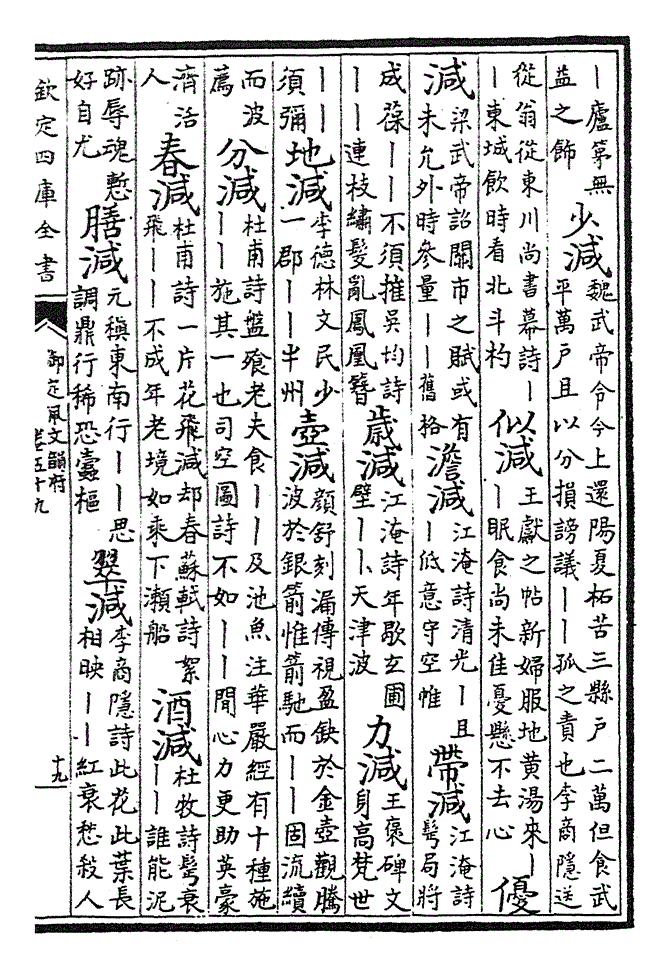 丨廬第無
益之飾
少減
魏武帝令今上還陽夏柘苦三縣戶二萬但食武
平萬戶且以分損謗議丨丨孤之責也李商隱送
從翁從東川尚書幕詩丨
丨東城飲時看北斗杓
似減
王獻之帖新婦服地黄湯來丨
丨眠食尚未佳憂懸不去心
優
減
梁武帝詔關市之賦或有
未允外時參量丨丨舊格
澹減
江淹詩清光丨且
丨低意守空帷
帶減
江淹詩
髩局將
成葆丨丨不須摧吳均詩
丨丨連枝繡髮亂鳳凰簪
歲減
江淹詩年歇玄圃
璧丨丨天津波
力減
王褒碑文
身高梵世
丨丨
須彌
地減
李德林文民少
一郡丨丨半州
壺減
顔舒刻漏傳視盈缺於金壺觀騰
波於銀箭惟箭馳而丨丨固流續
而波
薦
分減
杜甫詩盤飧老夫食丨丨及池魚注華嚴經有十種施
丨丨施其一也司空圖詩不如丨丨閒心力更助英豪
濟洽
人
春減
杜甫詩一片花飛減却春蘇軾詩絮
飛丨丨不成年老境如乘下瀨船
酒減
杜牧詩髩衰
丨丨誰能泥
跡辱魂慙
好自尤
膳減
元稹東南行丨丨思
調鼎行稀恐蠹樞
翠減
李商隱詩此花此葉長
相映丨丨紅衰愁殺人
欽定四庫全書
御定佩文韻府
卷五十九
十九